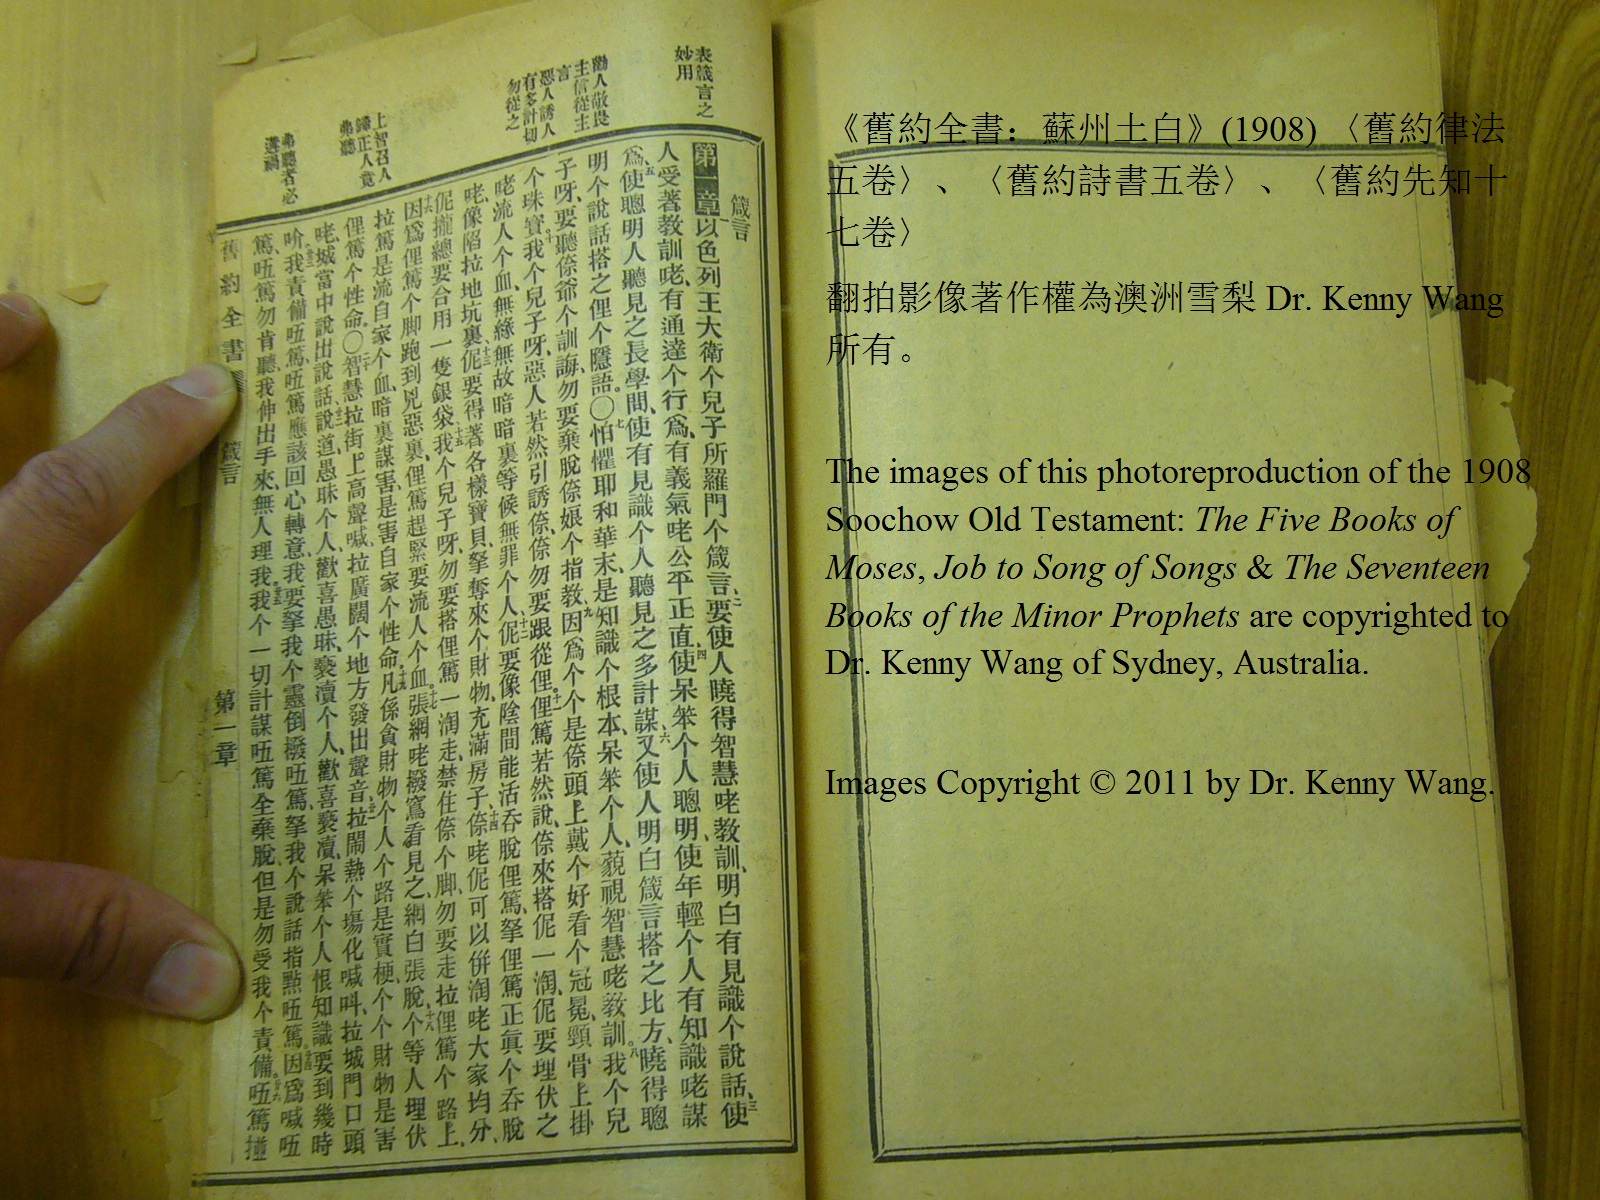 表箴言之
妙用
勸人敬畏
主信從主
言
惡人誘人
有多計切
勿從之
上智召人
歸正人竟
弗聽
弗聽者必
遭禍
箴言
第一章以色列王大衛个兒子所羅門个箴言、二要使人曉得智慧咾教訓、明白有見識个說話、三使
人受著教訓咾有通達个行爲、有義氣咾公平正直、四使呆笨个人聰明、使年輕个人有知識咾謀
爲、五使聰明人聽見之長學問、使有見識个人聽見之多計謀、六又使人明白箴言搭之比方、曉得聰
明个說話搭之俚个隱語。〇七怕懼耶和華末、是知識个根本、呆笨个人、藐視智慧咾教訓。八我个兒
子呀、要聽倷爺个訓誨、勿要棄脫倷娘个指教、九因爲个个是倷頭上戴个好看个冠冕、頸骨上掛
个珠寶。十我个兒子呀、惡人若然引誘倷、倷勿要跟從俚。十一俚篤若然說、倷來搭伲一淘、伲要埋伏之
咾流人个血、無緣無故暗暗裏等候無罪个人、十二伲要像陰間能活吞脫俚篤、拏俚篤正眞个吞脫
咾、像陷拉地坑裏、十三伲要得著各樣寶貝、拏奪來个財物、充滿房子、十四倷咾伲可以併淘咾大家均分、
伲攏總要合用一隻銀袋、十五我个兒子呀、勿要搭俚篤一淘走、禁住倷个脚、勿要走拉俚篤个路上、
十六因爲俚篤个脚跑到兇惡裏、俚篤趕緊要流人个血、十七張網咾撥窵看見之、網白張脫个、十八等人埋伏
拉篤是流自家个血、暗裏謀害、是害自家个性命。十九凡係貪財物个人个路是實梗、个个財物是害
俚篤个性命。〇二十智慧拉街上高聲喊、拉廣闊个地方發出聲音、廿一拉鬧熱个塲化喊呌、拉城門口頭
咾、城當中說出說話、廿二說道愚昧个人、歡喜愚昧、褻瀆个人、歡喜褻瀆、呆笨个人恨知識、要到幾時
吤、廿三我責備㕶篤、㕶篤應該回心轉意、我要拏我个靈倒撥㕶篤、拏我个說話指點㕶篤。廿四因爲喊㕶
篤、㕶篤勿肯聽、我伸出手來、無人理我、廿五我个一切計謀㕶篤全棄脫、但是勿受我个責備。廿六㕶篤撞
舊約全書 箴言 第一章
《舊約全書：蘇州土白》(1908) 〈舊約律法
五卷〉、〈舊約詩書五卷〉、〈舊約先知十
七卷〉
翻拍影像著作權為澳洲雪梨 Dr. Kenny Wang
所有。
The images of this photoreproduction of the 1908
Soochow Old Testament: The Five Books of
Moses, Job to Song of Songs & The Seventeen
Books of the Minor Prophets are copyrighted to
Dr. Kenny Wang of Sydney, Australia.
Images Copyright © 2011 by Dr. Kenny Wang.